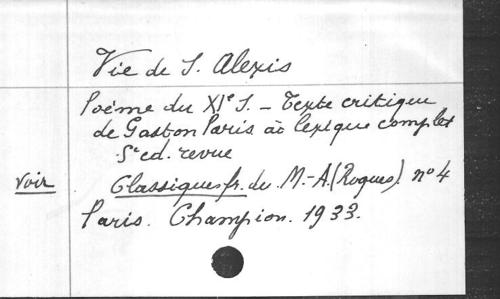 Vie de S. Alexis
Poème du XIe S. - Texte critique
de Gaston Paris ac lexique complet
5e ed. revue
Voir Classiques fr. du M.-A. (Roques). no 4
Paris. Champion. 1933.